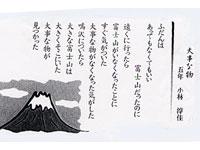 大事な物
五年 小林 淳佳
ふだんは
あってもなくてもいい
富士山だったのに
遠くに行ったら
富士山がいなくなったことに
すぐ気がついた
大事な物がなくなった気がした
鳴沢についたら
大きな富士山は
大きくそこにいた
大事な物が
見つかった